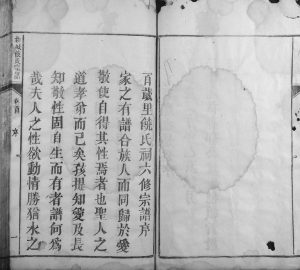 百歲里饒氏祠六修宗譜序
家之有譜合族人而同歸於愛
敬使自得其性焉者也聖人之
道孝弟而已矣孩提知愛及長
知敬性固自生而有者譜何為
哉夫人之性欲動情勝猶水之
卷首
序
一